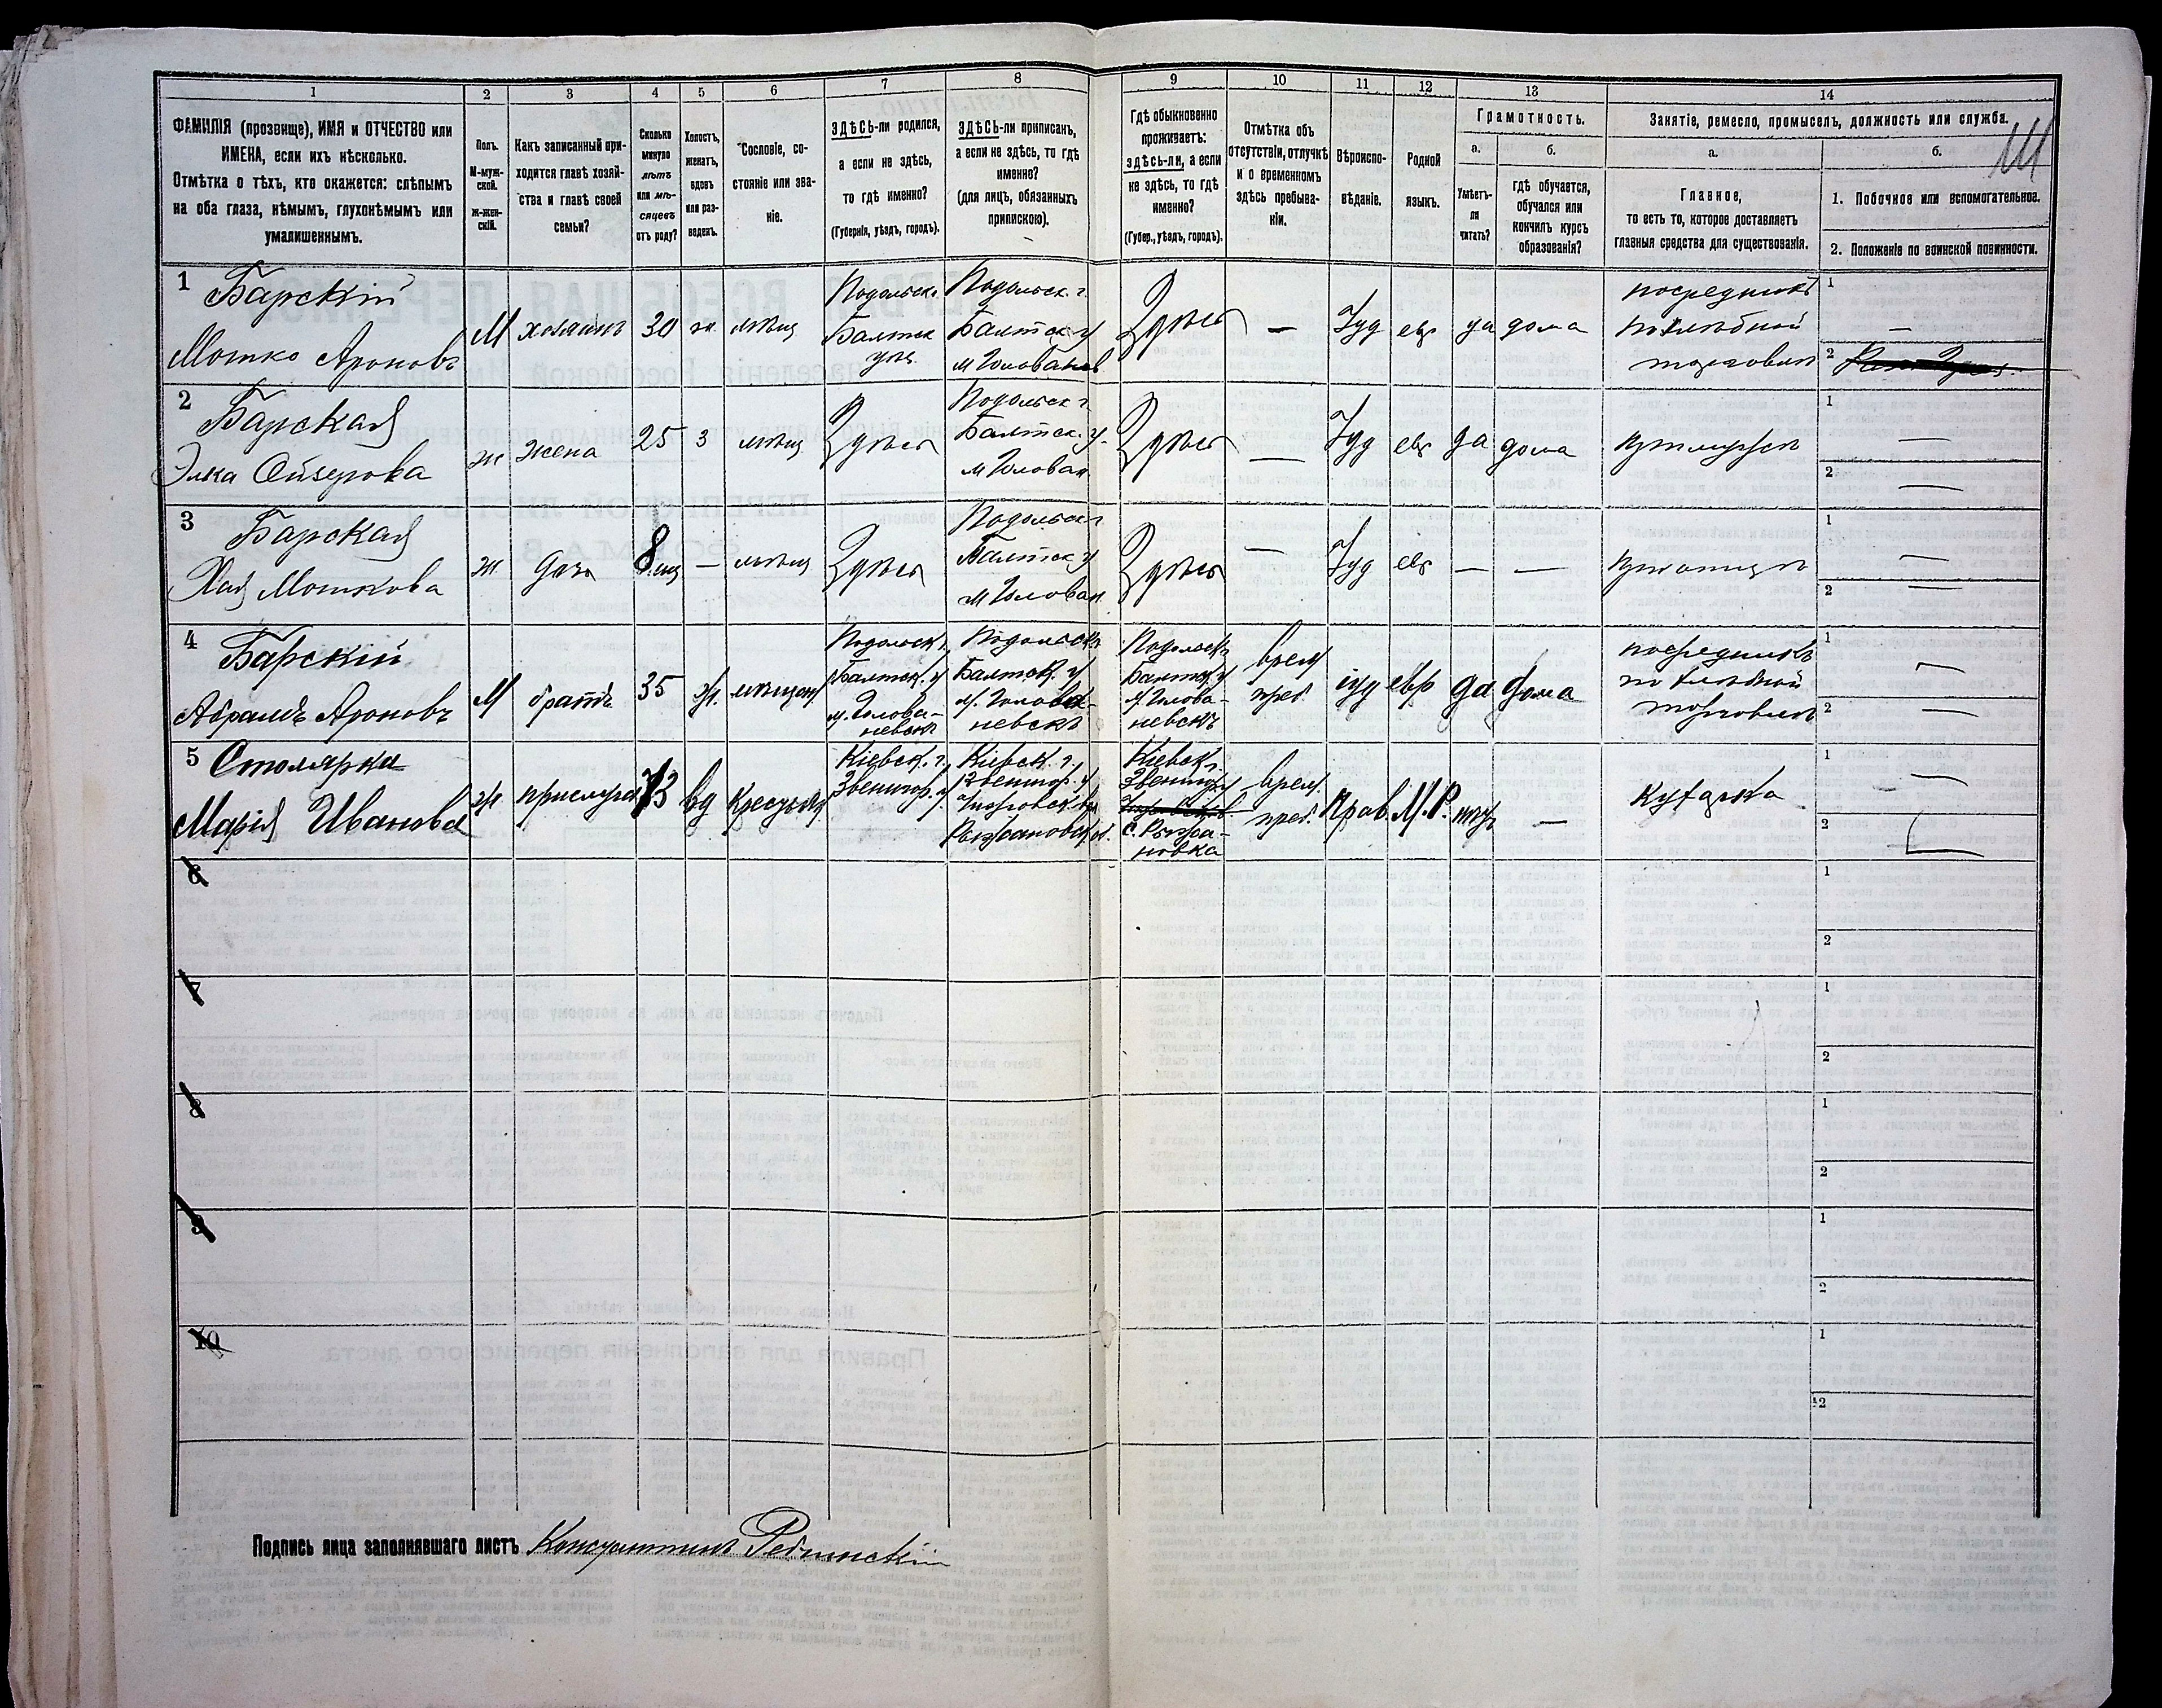 1 2 3 4 5 6 7 8 9 10 11 12 13 14
ФАМИЛІЯ (прозвище), ИМЯ и ОТЧЕСТВО или
ИМЕНА, если ихъ нѣсколько.
Отмѣтка о тѣхъ, кто окажется: слѣпымъ
на оба глаза, нѣмымъ, глухонѣмымъ или
умалишеннымъ.
Полъ.
М-муж-
ской.
Ж-жен-
скій.
Какъ записанный при-
ходится главѣ хозяй-
ства и главѣ своей
семьи?
Сколько
минуло
лѣтъ
или мѣ-
сяцевъ
отъ роду?
Холостъ,
женатъ,
вдовъ
или раз-
веденъ.
Сословіе, со-
стояніе или зва-
ніе.
ЗДѢСЬ-ли родился,
а если не здѣсь,
то гдѣ именно?
(Губернія, уѣздъ, городъ).
ЗДѢСЬ-ли приписанъ,
а если не здѣсь, то гдѣ
именно?
(для лицъ, обязанныхъ
припискою).
Гдѣ обыкновенно
проживаетъ:
здѣсь-ли, а если
не здѣсь, то гдѣ
именно?
(Губер., уѣздъ, городъ).
Отмѣтка объ
отсутствіи, отлучкѣ
и о временномъ
здѣсь пребыва-
ніи.
Вѣроиспо-
вѣданіе.
Родной
языкъ.
Грамотность.
а.
Умѣетъ-
ли
читать?
б.
гдѣ обучается,
обучался или
кончилъ курсъ
образованія?
Занятіе, ремесло, промыселъ, должность или служба.
а.
Главное,
то есть то, которое доставляетъ
главныя средства для существованія.
б.
1. Побочное или вспомогательное.
2. Положеніе по воинской повинности.
1 Барскій
Мошко Ароновъ
М
хозяинъ
30
ж.
мѣщ
Подольск.
Балтск
уѣз.
Подольск. г.
Балтск у
м Голованев
Здѣсь
—
Іуд
евр
да
дома
посредникъ
по хлѣбной
торговлѣ
1 —
2
2 Барская
Элка Ойзерова
ж
жена
25
з
мѣщ
Здѣсь
Подольск г.
Балтск. у.
м Голован
Здѣсь
—
Іуд
евр
да
дома
при мужѣ
1 —
2 —
3 Барская
Хая Мошкова
ж
дочь
8 мц
—
мѣщ
Здѣсь
Подольск г
Балтск у
м Голован
Здѣсь
—
Іуд
евр
—
—
при отцѣ
1 —
2 —
4 Барскій
Абрамъ Ароновъ
М
братъ
35
ж.
мѣщан
Подольск г.
Балтск. у
м. Голова-
невскъ
Подольск г
Балтск. у
м. Голова-
невскъ
Подольск г
Балтск у
м. Голова-
невскъ
врем
преб.
іуд
евр
да
дома
посредникъ
по хлѣбной
торговлѣ
1 —
2 —
5 Столярка
Марія Иванова
ж
прислуга
73
вд
крестьян
Кіевск. г.
Звенигор. у.
Кіевск. г.
Звенигор. у
Рыжановск.
Кіевск г.
Звениг. у
с. Рыжа-
новка
врем.
преб.
Прав.
М.Р.
нѣтъ
—
кухарка
1 —
2
6 1
2
7 1
2
8 1
2
9 1
2
10 1
2
Подпись лица заполнявшаго листъ Константинъ